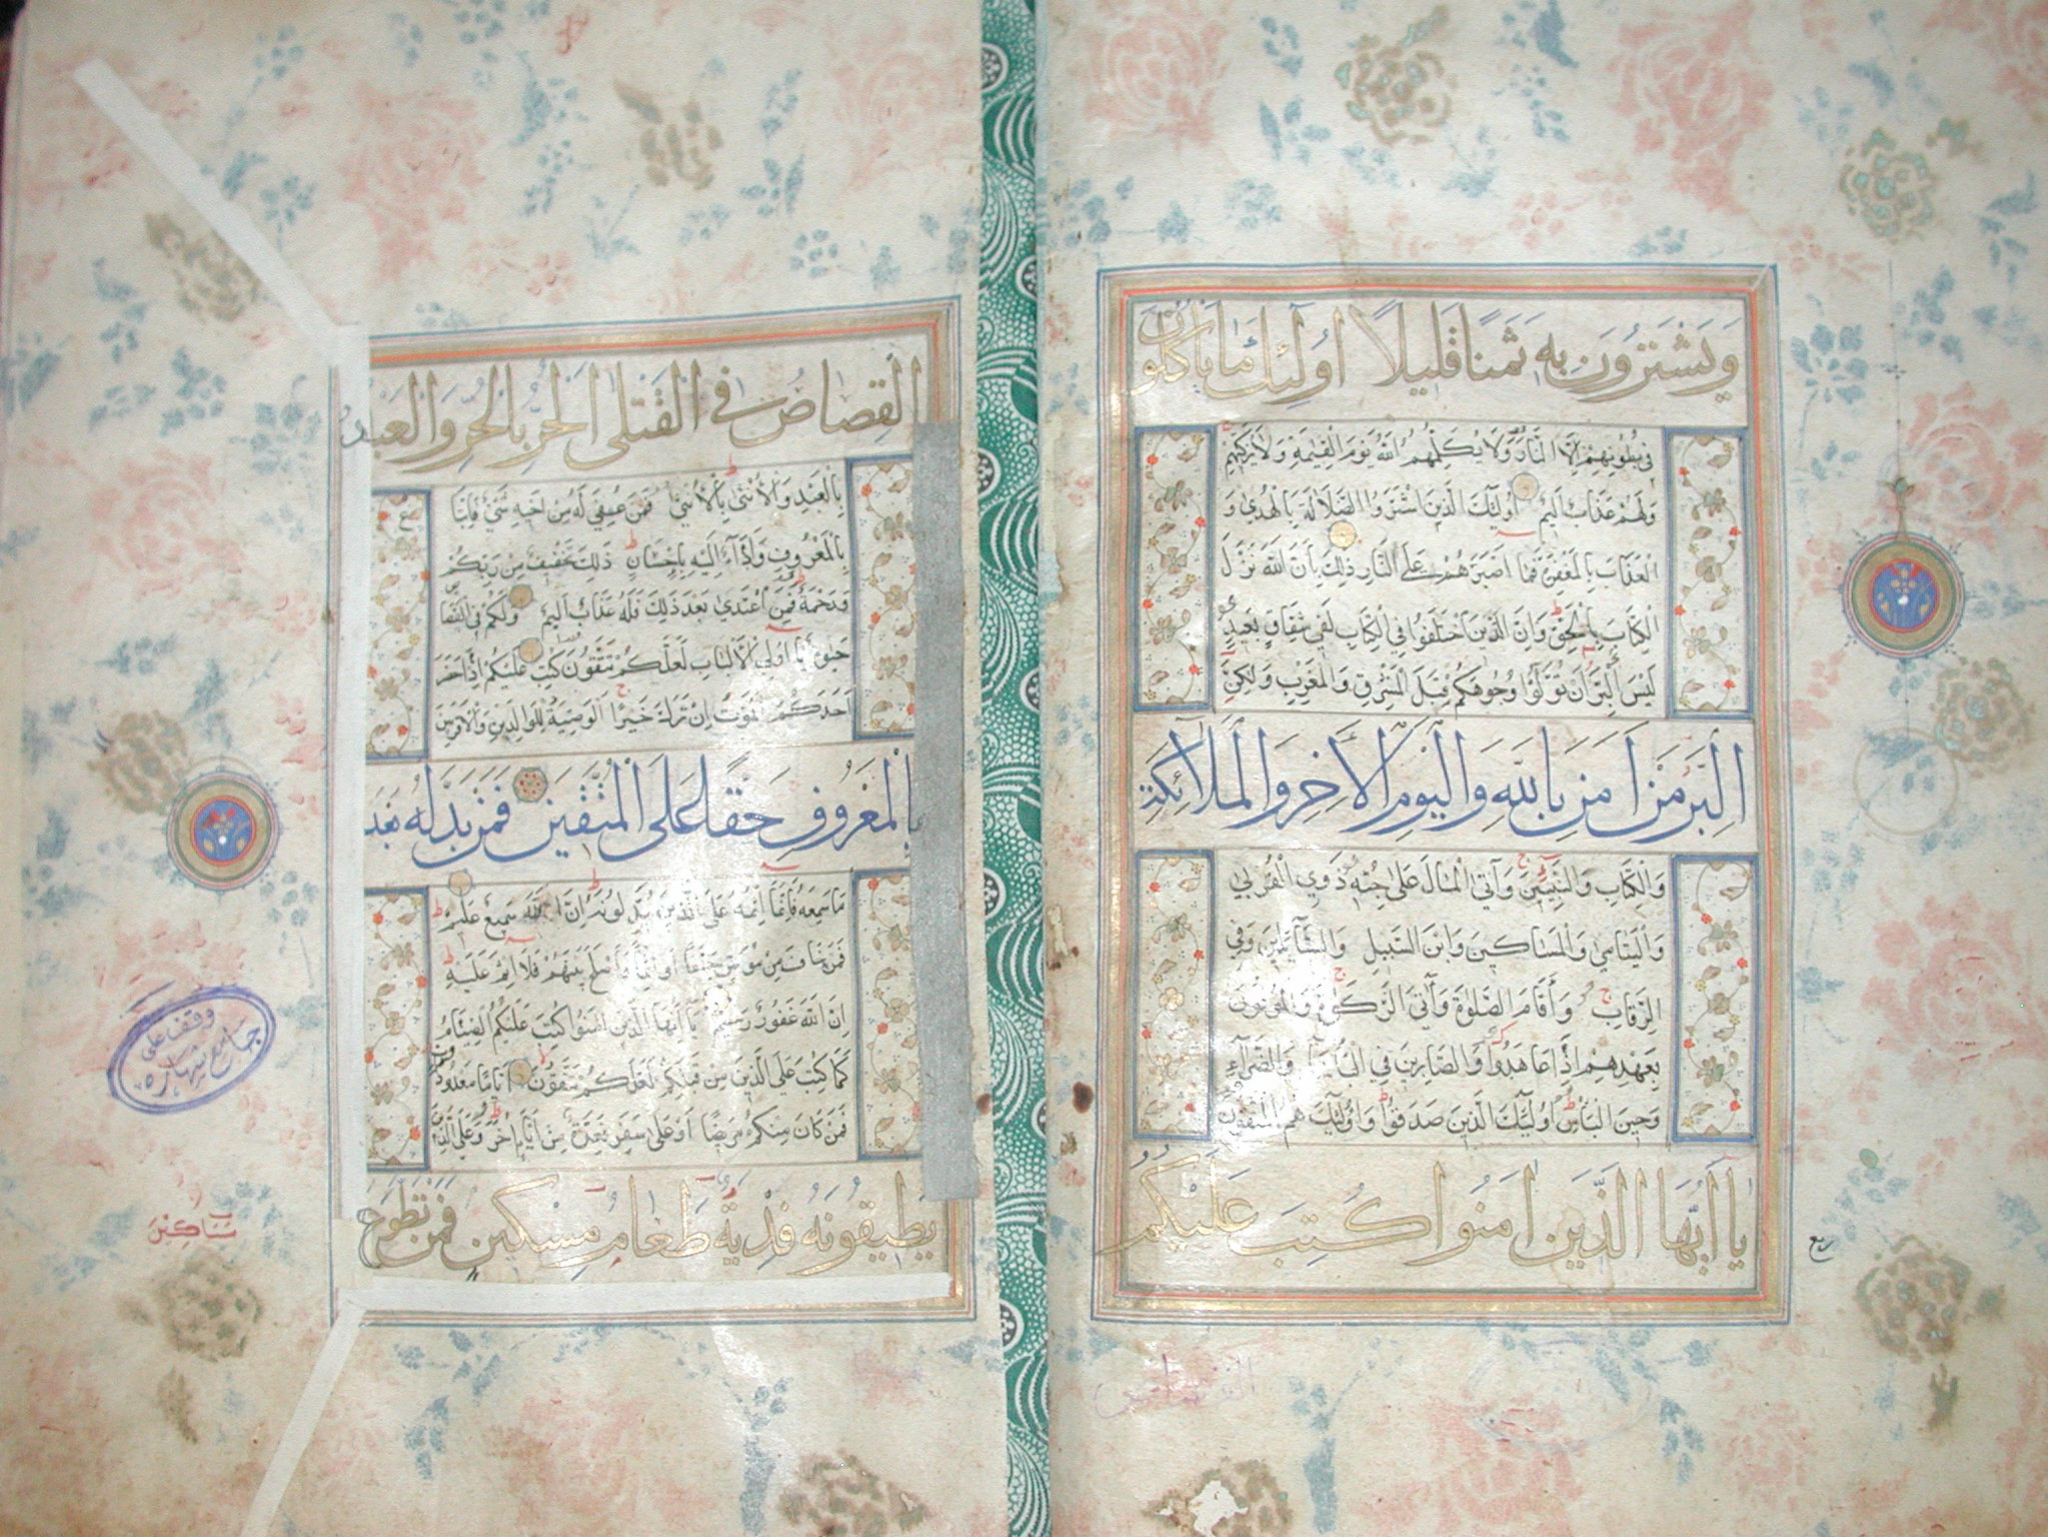 وَيَشْتَرُونَ بِهِ ثَمَنًا قَلِيلًا أُولَئِكَ مَا يَأْكُلُونَ
فِي بُطُونِهِمْ إِلَّا النَّارَ وَلَا يُكَلِّمُهُمُ اللَّهُ يَوْمَ الْقِيٰمَةِ وَلَا يُزَكِّيهِمْ
وَلَهُمْ عَذَابٌ أَلِيمٌ أُولَئِكَ الَّذِينَ اشْتَرَوُا الضَّلَالَةَ بِالْهُدَى وَ
الْعَذَابَ بِالْمَغْفِرَةِ فَمَا أَصْبَرَهُمْ عَلَى النَّارِ ذَلِكَ بِأَنَّ اللَّهَ نَزَّلَ
الْكِتَابَ بِالْحَقِّ وَإِنَّ الَّذِينَ اخْتَلَفُوا فِي الْكِتَابِ لَفِي شِقَاقٍ بَعِيدٍ
لَيْسَ الْبِرَّ أَنْ تُوَلُّوا وُجُوهَكُمْ قِبَلَ الْمَشْرِقِ وَالْمَغْرِبِ وَلَكِنَّ
الْبِرَّ مَنْ آمَنَ بِاللَّهِ وَالْيَوْمِ الْآخِرِ وَالْمَلَائِكَةِ
وَالْكِتَابِ وَالنَّبِيِّينَ وَآتَى الْمَالَ عَلَى حُبِّهِ ذَوِي الْقُرْبَى
وَالْيَتَامَى وَالْمَسَاكِينَ وَابْنَ السَّبِيلِ وَالسَّائِلِينَ وَفِي
الرِّقَابِ وَأَقَامَ الصَّلٰوةَ وَآتَى الزَّكٰوةَ وَالْمُوفُونَ
بِعَهْدِهِمْ إِذَا عَاهَدُوا وَالصَّابِرِينَ فِي الْبَأْسَاءِ وَالضَّرَّاءِ
وَحِينَ الْبَأْسِ أُولَئِكَ الَّذِينَ صَدَقُوا وَأُولَئِكَ هُمُ الْمُتَّقُونَ
يَا أَيُّهَا الَّذِينَ آمَنُوا كُتِبَ عَلَيْكُمُ
ربع
الْقِصَاصُ فِي الْقَتْلَى الْحُرُّ بِالْحُرِّ وَالْعَبْدُ
بِالْعَبْدِ وَالْأُنْثَى بِالْأُنْثَى فَمَنْ عُفِيَ لَهُ مِنْ أَخِيهِ شَيْءٌ فَاتِّبَا
بِالْمَعْرُوفِ وَأَدَاءٌ إِلَيْهِ بِإِحْسَانٍ ذَلِكَ تَخْفِيفٌ مِنْ رَبِّكُمْ
وَرَحْمَةٌ فَمَنِ اعْتَدَى بَعْدَ ذَلِكَ فَلَهُ عَذَابٌ أَلِيمٌ وَلَكُمْ فِي الْقِصَا
حَيٰوةٌ يَا أُولِي الْأَلْبَابِ لَعَلَّكُمْ تَتَّقُونَ كُتِبَ عَلَيْكُمْ إِذَا حَضَرَ
أَحَدَكُمُ الْمَوْتُ إِنْ تَرَكَ خَيْرًا الْوَصِيَّةُ لِلْوَالِدَيْنِ وَالْأَقْرَبِينَ
بِالْمَعْرُوفِ حَقًّا عَلَى الْمُتَّقِينَ فَمَنْ بَدَّلَهُ بَعْدَ
مَا سَمِعَهُ فَإِنَّمَا إِثْمُهُ عَلَى الَّذِينَ يُبَدِّلُونَهُ إِنَّ اللَّهَ سَمِيعٌ عَلِيمٌ
فَمَنْ خَافَ مِنْ مُوصٍ جَنَفًا أَوْ إِثْمًا فَأَصْلَحَ بَيْنَهُمْ فَلَا إِثْمَ عَلَيْهِ
إِنَّ اللَّهَ غَفُورٌ رَحِيمٌ يَا أَيُّهَا الَّذِينَ آمَنُوا كُتِبَ عَلَيْكُمُ الصِّيَامُ
كَمَا كُتِبَ عَلَى الَّذِينَ مِنْ قَبْلِكُمْ لَعَلَّكُمْ تَتَّقُونَ أَيَّامًا مَعْدُودَ
فَمَنْ كَانَ مِنْكُمْ مَرِيضًا أَوْ عَلَى سَفَرٍ فَعِدَّةٌ مِنْ أَيَّامٍ أُخَرَ وَعَلَى الَّذِينَ
يُطِيقُونَهُ فِدْيَةٌ طَعَامُ مِسْكِينٍ فَمَنْ تَطَوَّعَ
وقف على
جامع شهاره
مَسَاكِينَ